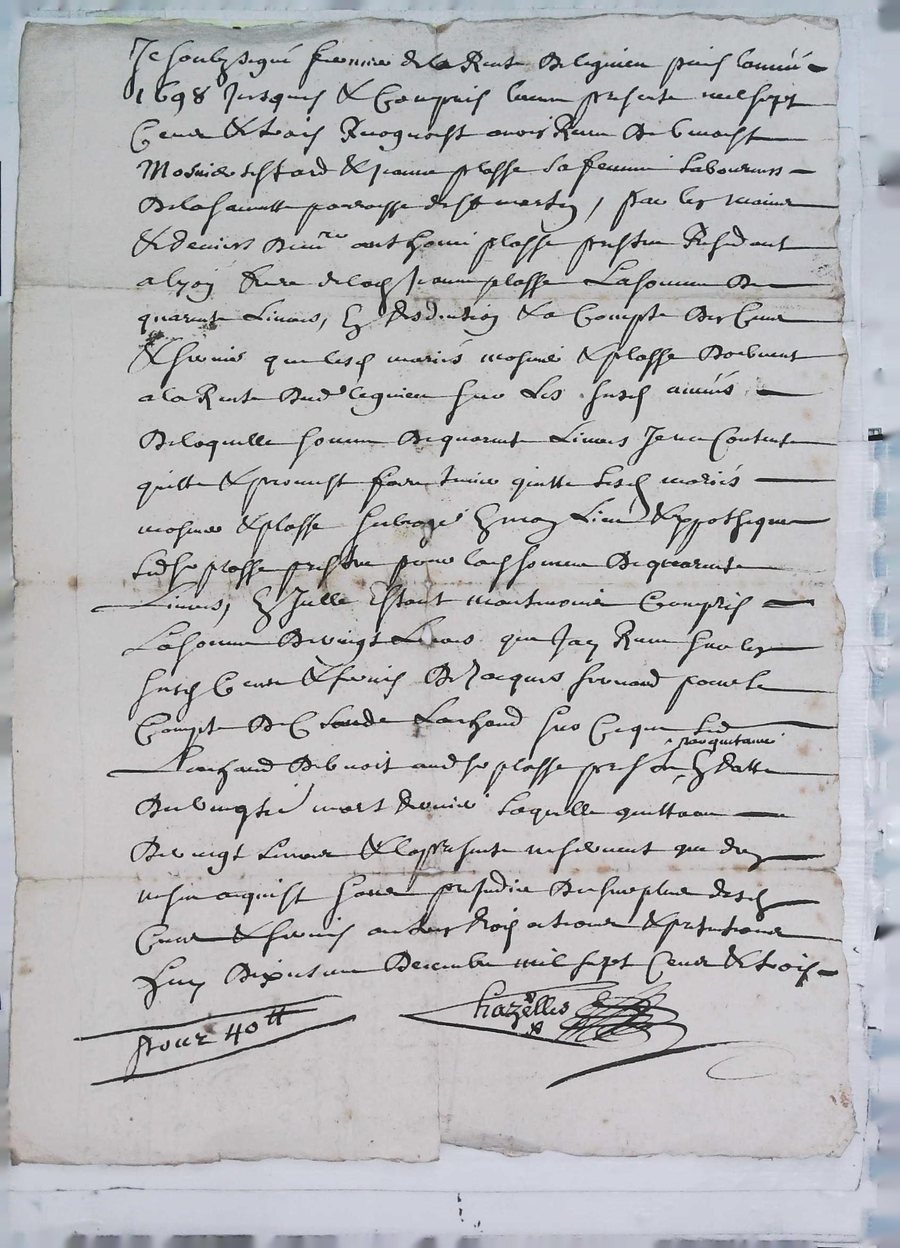 Je soubz signé fermier de la Rente De leignieu puis lannée
1698 Jusques & Compris lannee presente mil sept
Cens & trois Recognoist avoir Receu De benoist
Mosnier & Jeanne plasse sa femme Laboureurs
De la paroisse de St martin, par les mains
& deniers De mre anthoine plasse prestre Residant
a lyon frere de lad Jeanne plasse La somme De
quarante Livres, En desduction & a Compte Des Cens
& servis que lesd mariés mosnier & plasse Doibvent
a la Rente Dud leignieu sur Les susd années
De laquelle somme De quarante Livres Je me Contente
quitte & promest faire tenir quitte lesd mariés
mosnier & plasse subrogé En mon Lieu & ypotheque
led sr plasse prestre pour lad somme De quarante
Livres, En Icelle Estant Compris
La somme De vingt Livres que Jay Receu sur les
susd Cens & servis De Jacques pour le
Compte De Claude Larchand sur Ce que led
Larchand Debvoit aud sr plasse prestre En datte
quittance
Du vingtie mars dernier Laquelle quittance
De vingt Livres & la presente ne servent que de
mesme acquist sans prejudice Du surplus desd
Cens & servis autres droits actions & pretentions
faict Dixiesme Decembre mil sept Cens & trois
Chazelles
pour 40 ₶